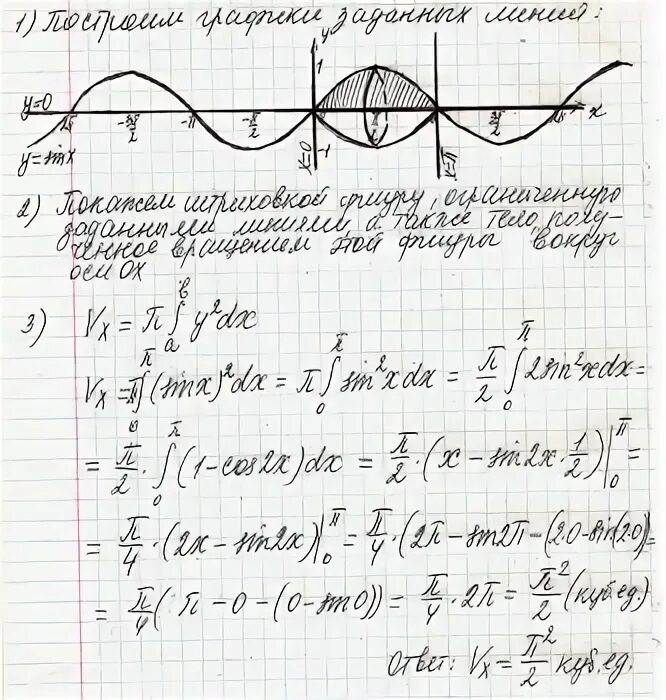 1) Построим графики заданных линий:
y
1
y=0
-2π -3π/2 -π -π/2 π/2 3π/2 2π x
y=sinx x=0 -1 x=π
2) Покажем штриховкой фигуру, ограниченную
заданными линиями, а также тело, полу-
ченное вращением этой фигуры вокруг
оси OX
3) Vₓ = π∫ₐᵇ y²dx
Vₓ = π∫₀^π (sinx)²dx = π∫₀^π sin²xdx = π/2 ∫₀^π 2sin²xdx =
= π/2 · ∫₀^π (1-cos2x)dx = π/2 · (x - sin2x · 1/2)|₀^π =
= π/4 · (2x - sin2x)|₀^π = π/4 · (2π - sin2π - (2·0 - sin(2·0)) =
= π/4 ( π - 0 - (0 - sin0)) = π/4 · 2π = π²/2 (куб.ед.)
Ответ: Vₓ = π²/2 куб.ед.